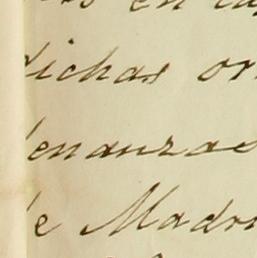 en
dichas or
denanzas
de Madri